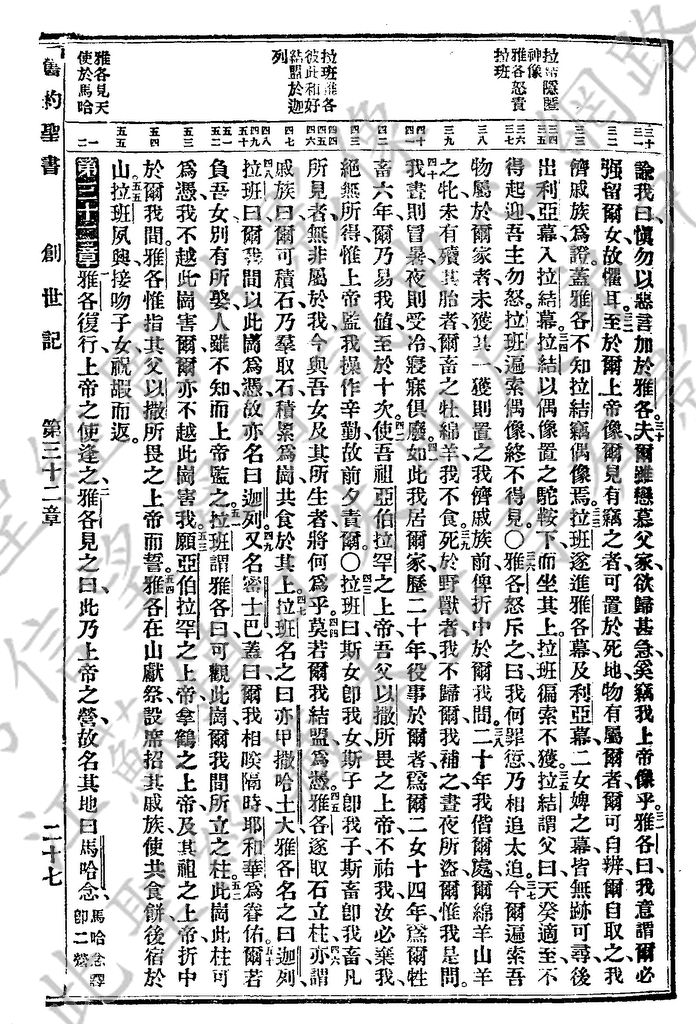 舊約聖書　創世記　第三十二章　二十七
拉結隱匿
神像
雅各怒責
拉班
拉班雅各
彼此和好
結盟於迦
列
雅各見天
使於馬哈
三十
三一
三二
三三
三四
三五
三六
三七
三八
三九
四十
四一
四二
四三
四四
四五
四六
四七
四八
四九
五十
五一
五二
五三
五四
五五
一
二
論我曰愼勿以惡言加於雅各三十夫爾雖戀慕父家欲歸甚急奚竊我上帝像乎三一雅各曰我意謂爾必
强留爾女故懼耳三二至於爾上帝像爾見有竊之者可置於死地物有屬爾者爾可自辨爾自取之我
儕戚族爲證蓋雅各不知拉結竊偶像焉三三拉班遂進雅各幕及利亞幕二女婢之幕皆無跡可尋後
出利亞幕入拉結幕三四拉結以偶像置之駝鞍下而坐其上拉班徧索不獲三五拉結謂父曰天癸適至不
得起迎吾主勿怒拉班遍索偶像終不得見〇三六雅各怒斥之曰我何罪愆乃相追太迫三七今爾遍索吾
物屬於爾家者未獲其一獲則置之我儕戚族前俾折中於爾我間三八二十年我偕爾處爾綿羊山羊
之牝未有殰其胎者爾畜之牡綿羊我不食三九死於野獸者我不歸爾我補之晝夜所盜爾惟我是問
四十我晝則冒暑夜則受冷寢寐俱廢四一如此我居爾家歷二十年役事於爾者爲爾二女十四年爲爾牲
畜六年爾乃易我値至於十次四二使吾祖亞伯拉罕之上帝吾父以撒所畏之上帝不祐我汝必棄我
絕無所得惟上帝監我操作辛勤故前夕責爾〇四三拉班曰斯女卽我女斯子卽我子斯畜卽我畜凡
所見者無非屬於我今與吾女及其所生者將何爲乎四四莫若爾我結盟爲憑四五雅各遂取石立柱四六亦謂
戚族曰爾可積石乃羣取石積累爲崗共食於其上四七拉班名之曰亦甲撒哈土大雅各名之曰迦列
四八拉班曰爾我間以此崗爲憑故亦名曰迦列四九又名密士巴蓋曰爾我相暌隔時耶和華爲眷佑五十爾若
負吾女別有所娶人雖不知而上帝監之五一拉班謂雅各曰可觀此崗爾我間所立之柱五二此崗此柱可
爲憑我不越此崗害爾爾亦不越此崗害我五三願亞伯拉罕之上帝拿鶴之上帝及其祖之上帝折中
於爾我間雅各惟指其父以撒所畏之上帝而誓五四雅各在山獻祭設席招其戚族使共食餅後宿於
山五五拉班夙興接吻子女祝嘏而返
第三十二章雅各復行上帝之使逢之二雅各見之曰此乃上帝之營故名其地曰馬哈念馬哈念譯卽二營